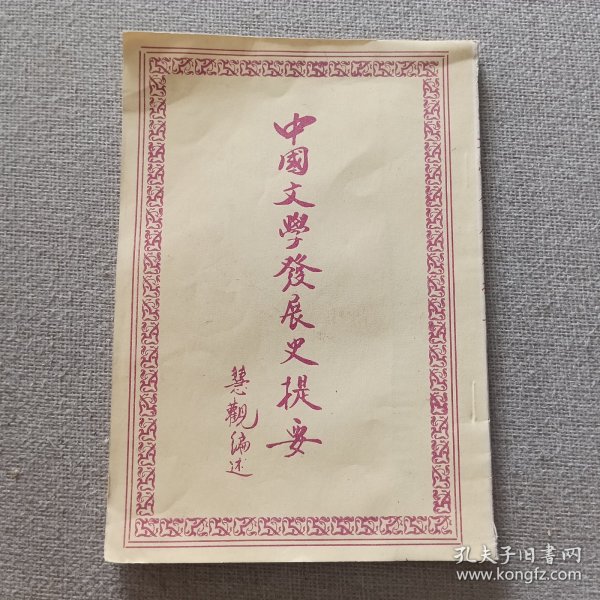 中國文學發展史提要
慧觀編述
孔夫子旧書网
www.kongfz.com